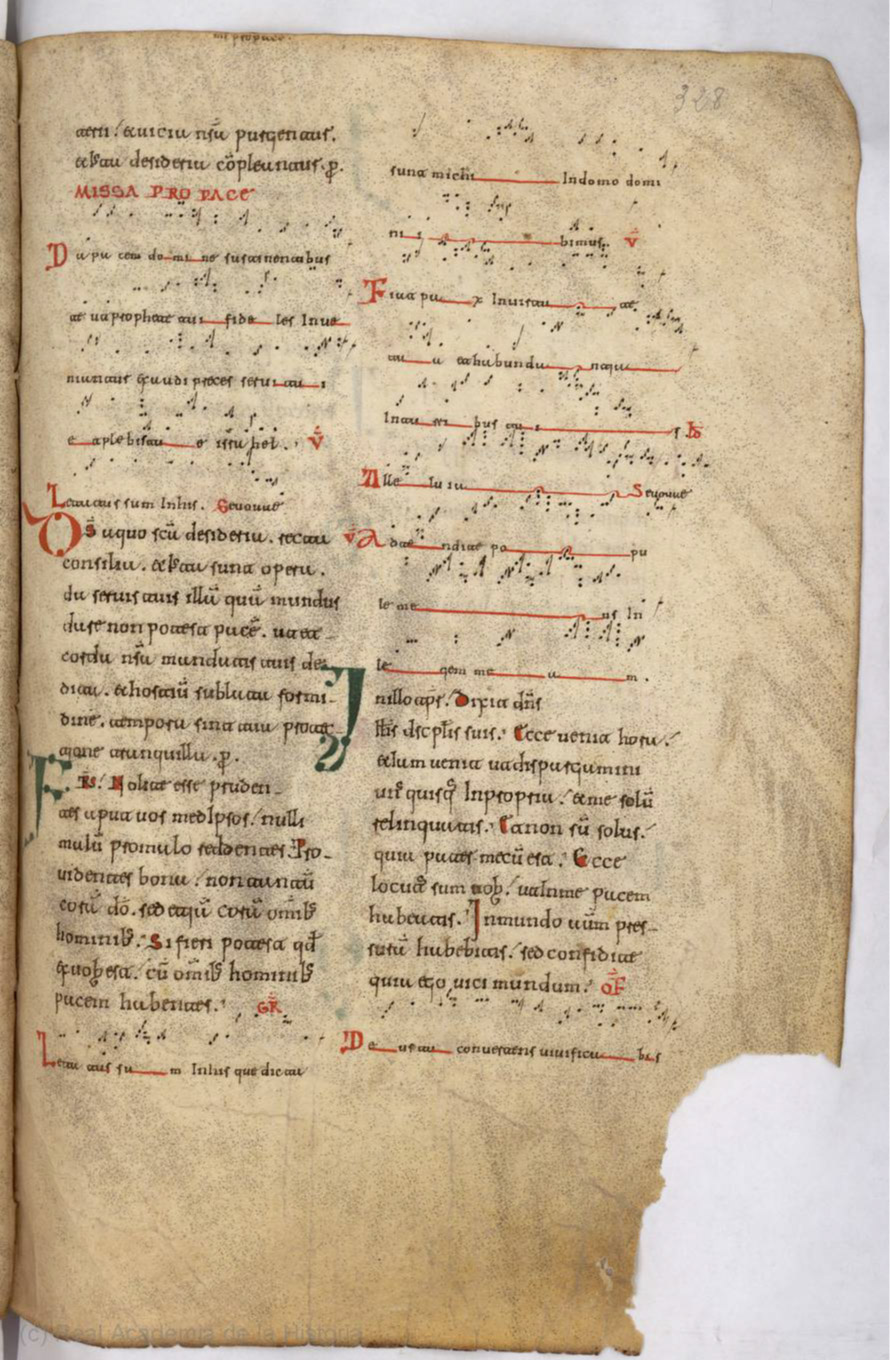 & uicia nr̄a purgentur.
desideria cōpleantur. p̄.
MISSA PRO PACE
Da pacem domine sustinentibus
te ut prophete tui fideles Inue
niantur exaudi preces serui tui
et plebis tue isrl V̄
Letatus sum Inhis. Seuouae
Ds̄ a quo scā desideria. recta
consilia. & iusta sunt opera.
da seruis tuis illā quā mundus
dare non potest pacē. ut et
corda nr̄a mandatis tuis de-
dita. & hostiū sublata formi-
dine. tempora sint tua protec-
tione tranquilla. p̄.
FRS. Nolite esse pruden-
tes aput uos medipsos / nulli
malū pro malo reddentes. Pro-
uidentes bona / non tantū
corā dō. sed etiā corā omib;
hominib;. Si fieri potest qd̄
ex uob est / cū omib; hominib;
pacem habentes. GR̄
Letatus sum Inhis que dicta
328
sunt michi In domo domi
ni ibimus. V̄
Fiat pax In uirtute
tua et habundantia
In turribus tuis
Alleluia Seuouae
V̄ Adtendite popu
le meus In
legem meam.
In illo tp̄r. Dixit dn̄s
ih̄s discplis suis. Ecce uenit hora /
& iam uenit ut dispargamini
unusquisq; Inpropria / & me solū
relinquatis. Et non sū solus /
quia pater mecū est. Ecce
locutus sum uob / ut Inme pacem
habeatis. In mundo pres-
surā habebitis / sed confidite
quia ego uici mundum. OF
conuertens uiuificabis
(c) Real Academia de la Historia